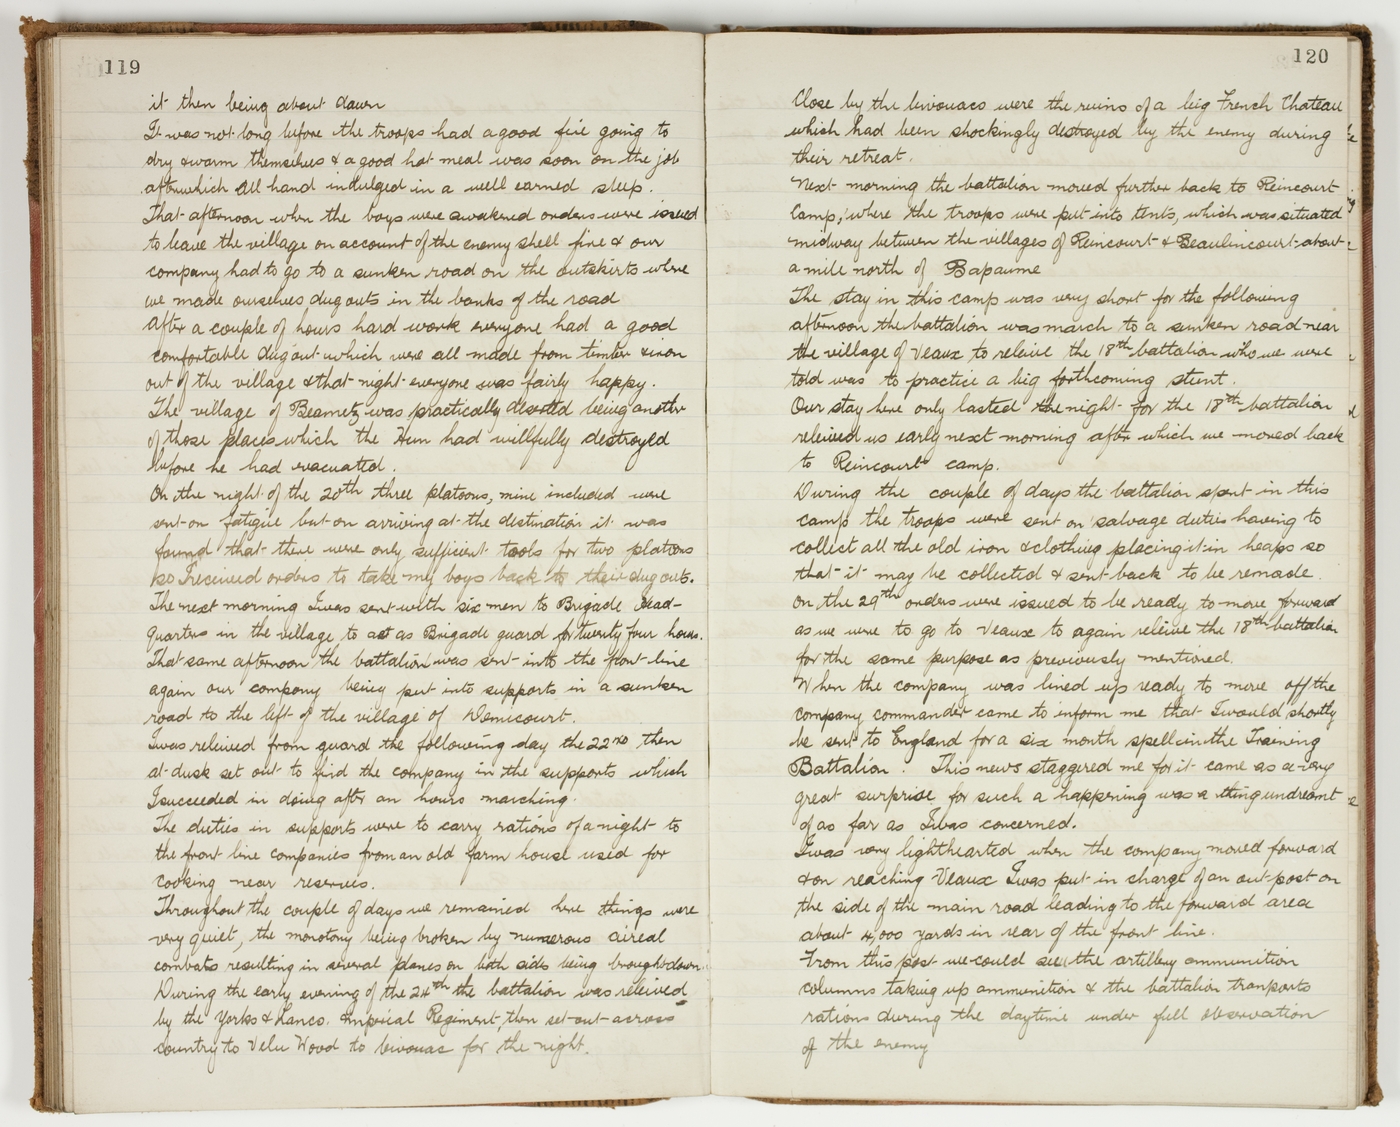 119
it then being about dawn
It was not long before the troops had a good fire going to
dry & warm themselves & a good hot meal was soon on the job
afterwhich all hand indulged in a well earned sleep.
That afternoon when the boys were awakened orders were issued
to leave the village on account of the enemy shell fire & our
company had to go to a sunken road on the outskirts where
we made ourselves dugouts in the banks of the road
After a couple of hours hard work everyone had a good
comfortable dugout which were all made from timber & iron
out of the village & that night everyone was fairly happy.
The village of Beametz was practically deserted being another
of those places which the Hun had willfully destroyed
before he had evacuated.
On the night of the 20th three platoons, mine included were
sent on fatigue but on arriving at the destination it was
found that there were only sufficient tools for two platoons
so I received orders to take my boys back to their dugouts.
The next morning I was sent with six men to Brigade Head-
quarters in the village to act as Brigade guard for twenty four hours.
That same afternoon the battalion was sent into the front line
again our company being put into supports in a sunken
road to the left of the village of Demicourt.
I was releived from guard the following day the 22nd then
at dusk set out to find the company in the supports which
I succeeded in doing after an hours marching.
The duties in supports were to carry rations of a night to
the front line companies from an old farm house used for
cooking near reserves.
Throughout the couple of days we remained here things were
very quiet, the monotony being broken by numerous aireal
combats resulting in several planes on both sides being brought down.
During the early evening of the 24th the battalion was releived
by the Yorks & Lancs. Imperial Regiment, then set out across
country to Velu Wood to bivouac for the night.
120
Close by the bivouacs were the ruins of a big French Chateau
which had been shockingly destroyed by the enemy during
their retreat.
Next morning the battalion moved further back to Reincourt
Camp, where the troops were put into tents, which was situated
midway between the villages of Reincourt & Beaulincourt about
a mile north of Bapaume
The stay in this camp was very short for the following
afternoon the battalion was march to a sunken road near
the village of Veaux to releive the 18th battalion who we were
told was to practice a big forthcoming stunt.
Our stay here only lasted the night for the 18th battalion
releived us early next morning after which we moved back
to Reincourt camp.
During the couple of days the battalion spent in this
camp the troops were sent on salvage duties having to
collect all the old iron & clothing placing it in heaps so
that it may be collected & sent back to be remade.
On the 29th orders were issued to be ready to move forward
as we were to go to Veaux to again releive the 18th battalion
for the same purpose as previously mentioned.
When the company was lined up ready to move off the
company commander came to inform me that I would shortly
be sent to England for a six month spell in the Training
Battalion. This news staggered me for it came as a very
great surprise for such a happening was a thing undreamt
of as far as I was concerned.
I was very lighthearted when the company moved forward
& on reaching Veaux I was put in charge of an out-post on
the side of the main road leading to the forward area
about 4,000 yards in rear of the front line.
From this post we could see the artillery ammunition
columns taking up ammunition & the battalion tranports
rations during the daytime under full observation
of the enemy